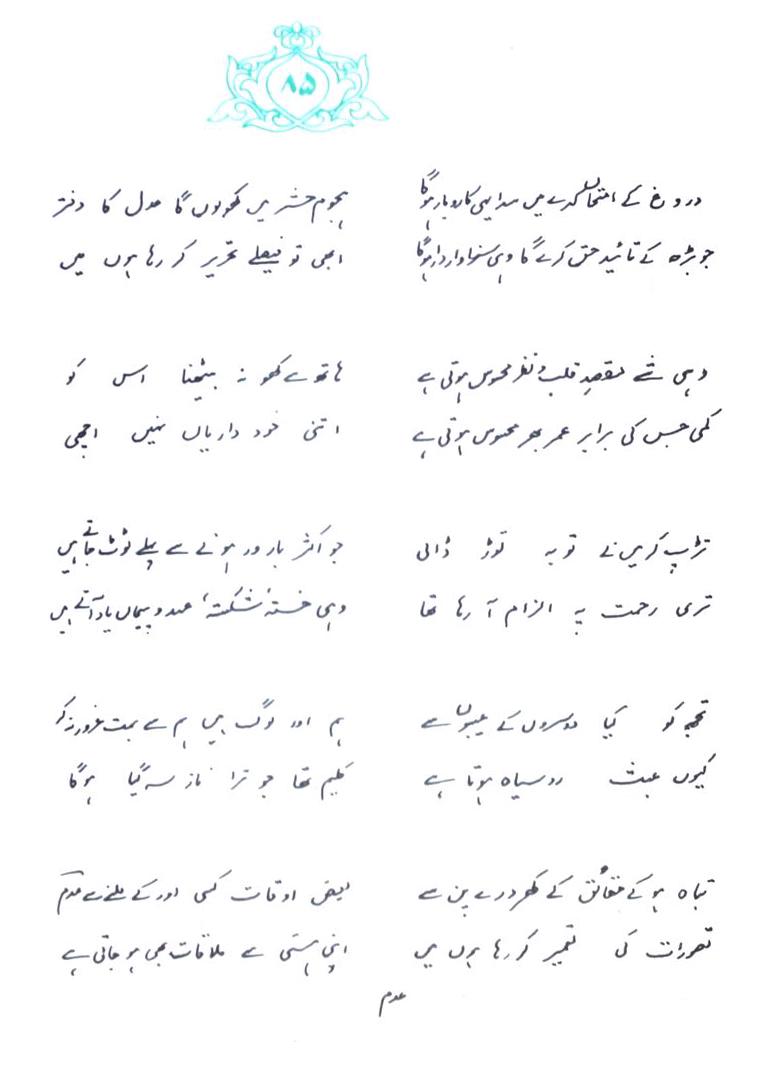 ۸۵
دروغ کے امتحاں کدے میں سدا یہی کاروبار ہوگا
جو بڑھ کے تائیدِ حق کرے گا وہی سزاوارِ دار ہوگا
ہجوم حشر میں کھولوں گا عدل کا دفتر
ابھی تو فیصلے تحریر کر رہا ہوں میں
وہی شے مقصدِ قلب و نظر محسوس ہوتی ہے
کمی جس کی برابر عمر بھر محسوس ہوتی ہے
ہاتھ سے کھو نہ بیٹھنا اس کو
اتنی خود داریاں نہیں اچھی
تڑپ کر میں نے توبہ توڑ ڈالی
تری رحمت پہ الزام آ رہا تھا
جو اکثر بارور ہونے سے پہلے ٹوٹ جاتے ہیں
وہی خستہ، شکستہ، عہد و پیماں یاد آتے ہیں
تجھ کو کیا دوسروں کے عیبوں سے
کیوں عبث روسیاہ ہوتا ہے
ہم اور لوگ ہیں ہم سے بہت غرور نہ کر
کلیم تھا جو ترا ناز سہ گیا ہوگا
تباہ ہو کے حقائق کے کھردرے پن سے
تصورات کی تعمیر کر رہا ہوں میں
بعض اوقات کسی اور کے ملنے سے عدم
اپنی ہستی سے ملاقات بھی ہو جاتی ہے
عدم